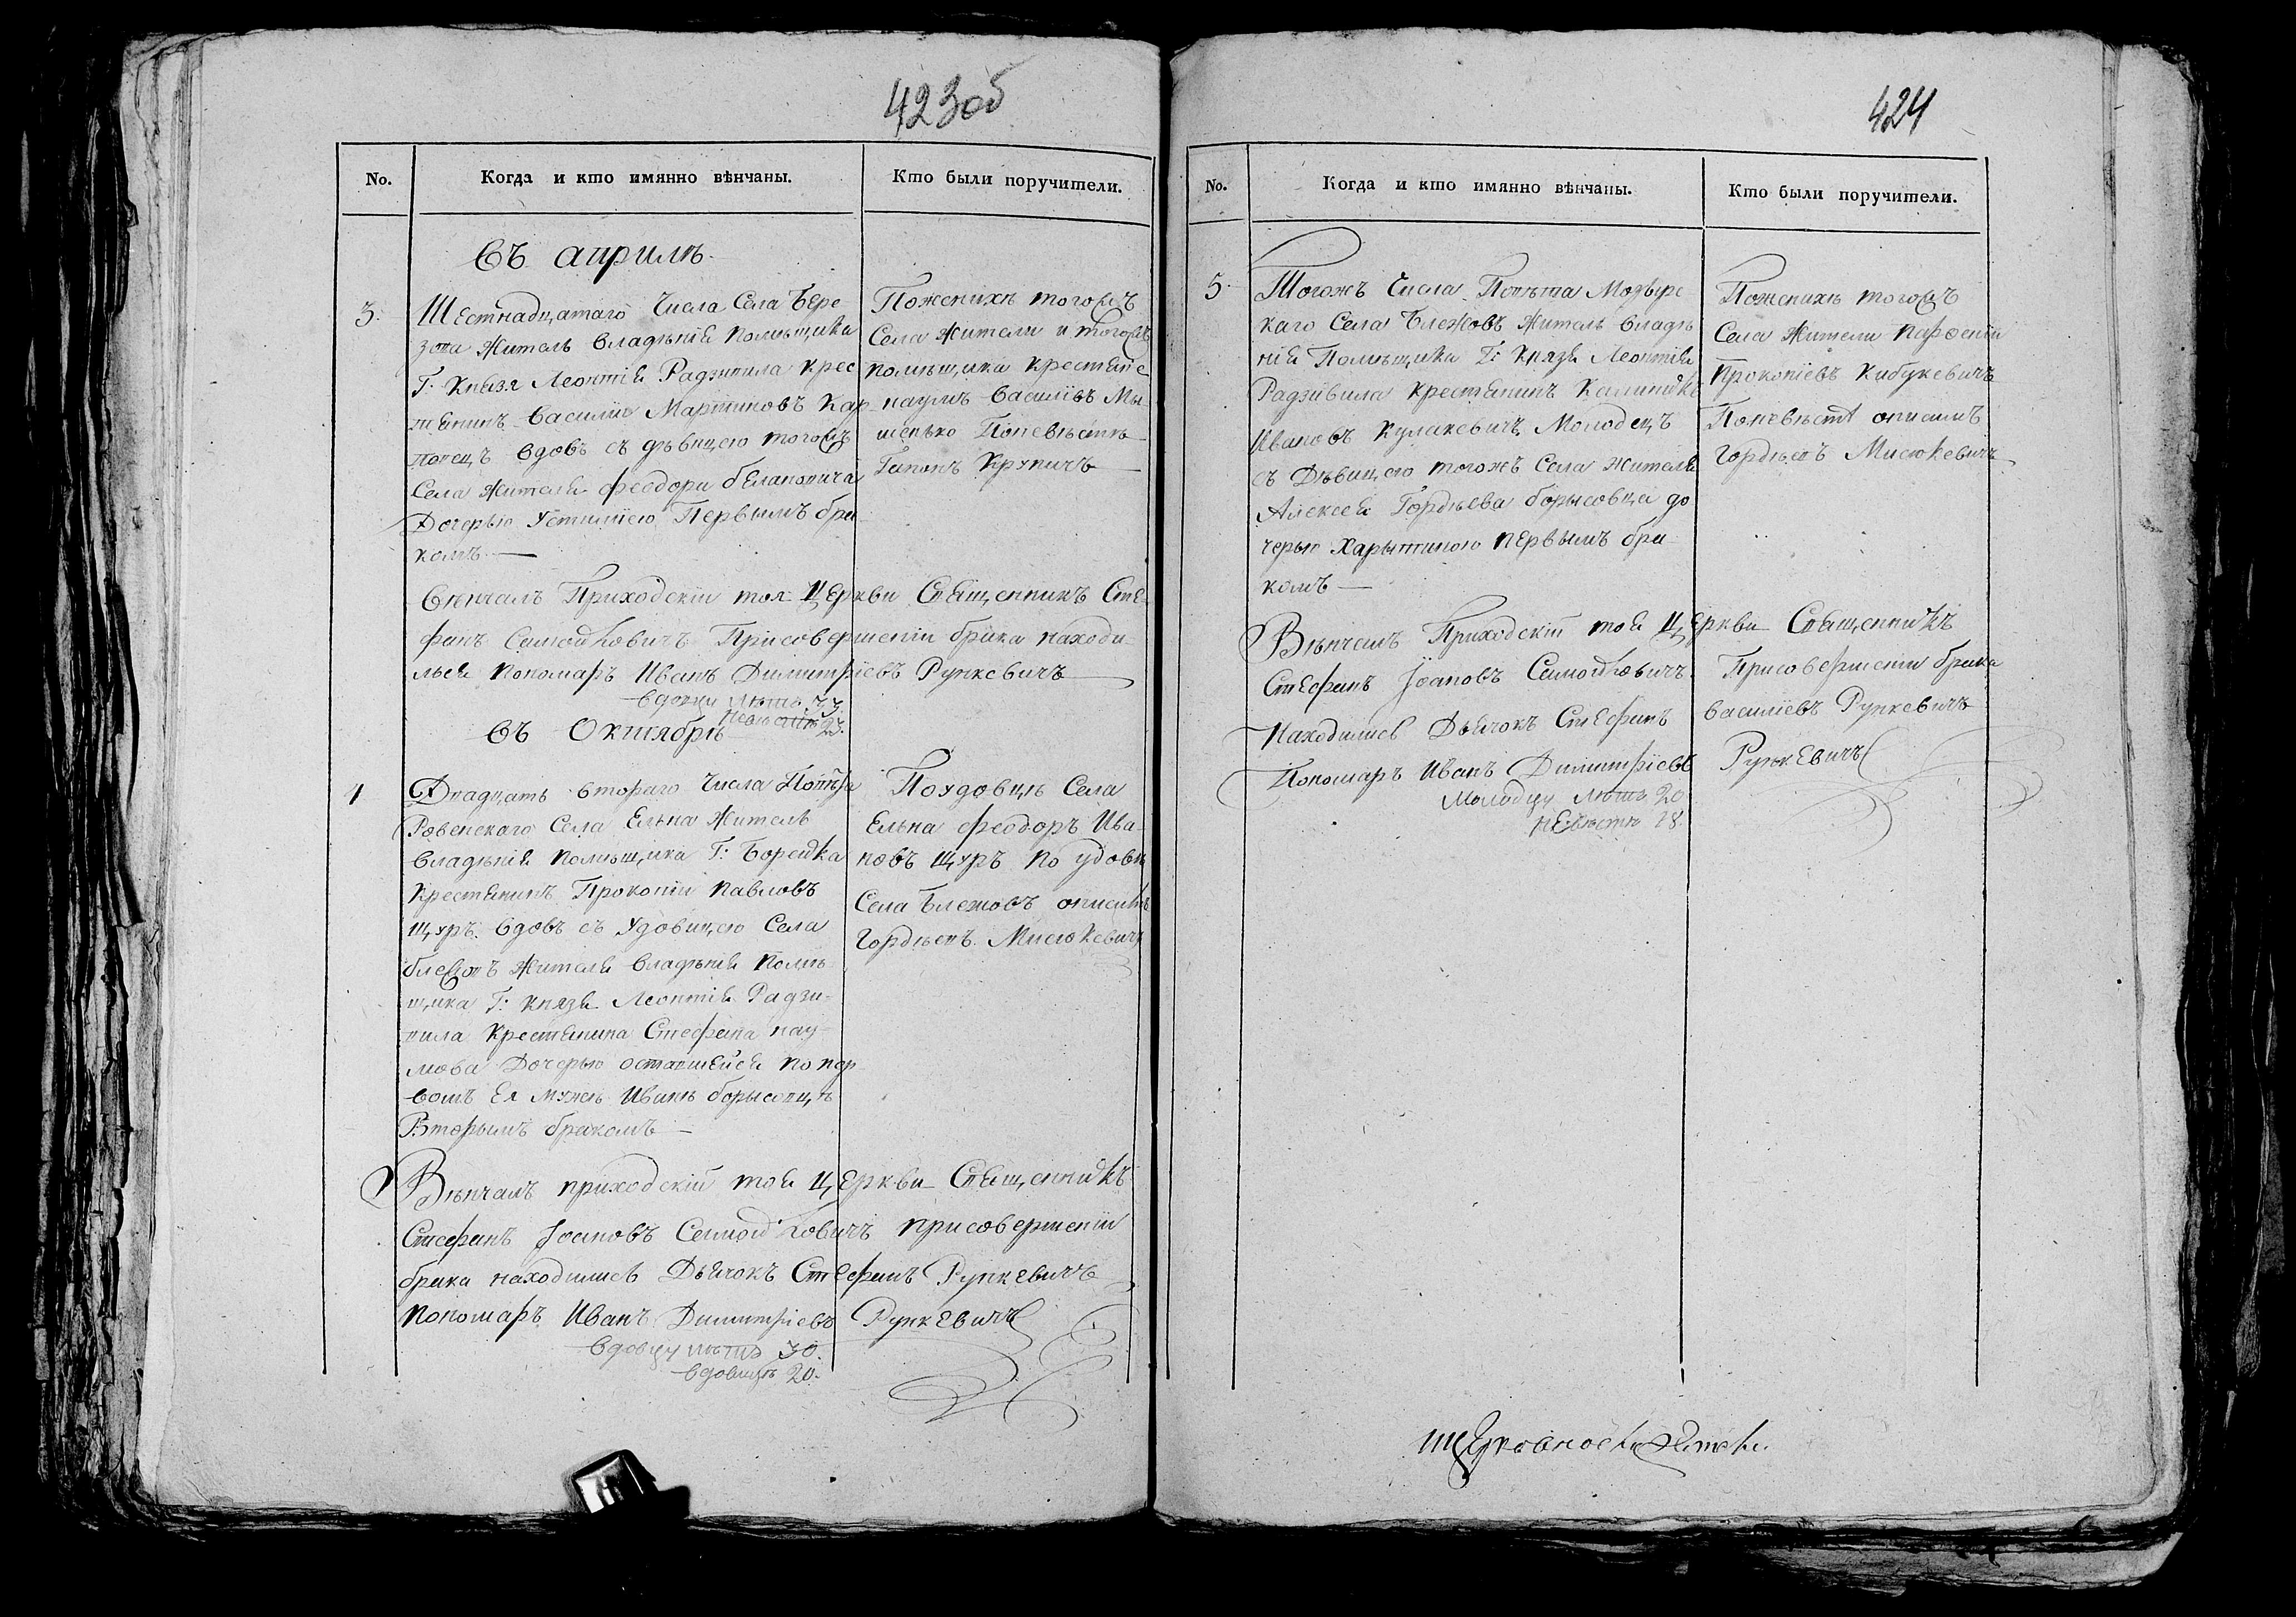 423об
No.
Когда и кто имянно вѣнчаны.
Кто были поручители.
въ априлѣ
3.
Шестнадцатаго Числа Села Бере
зова Житель владѣнія Помѣщика
Г: Князя Леонтія Радзивила крес
тянинъ Василій Мартиновъ Кар
повецъ вдовъ съ дѣвицею тогожъ
Села жителя феодора
Дочерью Устиніею Первымъ бра
комъ
Поженихѣ тогожъ
Села жители и тогожъ
помѣщика крестяне
наумъ Василіевъ Мы
шенько Поневѣстѣ
Гапонъ Крупичъ
Вѣнчалъ Приходскій тоя Церкви Священникъ Сте
фанъ Самойловичъ Присовершеніи брака находи
лься Пономаръ Иванъ Димитріевъ Рункевичъ
вдовцу лѣтъ 33.
Невѣстѣ 23.
въ Октябрѣ
4
Двадцать втораго Числа Повѣта
Ровенскаго Села Ельна Житель
владѣнія помѣщика Г: Борейка
Крестянинъ Прокопій Павловъ
Щуръ вдовъ съ Удовицею Села
блежовъ жителя владѣнія Помѣ
щика Г: Князя Леонтія Радзи-
вила Крестянина Стефана нау-
мова Дочерью оставшейся по пер
вомъ Ея мужѣ Иванѣ борысовцѣ
Вторымъ бракомъ
Поудовцѣ Села
Ельна феодоръ Ива
новъ Щуръ по удовѣ
Села Блежовъ онисимъ
Гордѣевъ Мисюкевичъ
Вѣнчалъ приходскій тоя Церкви Священникъ
Стефанъ Іоановъ Самойловичъ присовершеніи
брака находились Дьячокъ Стефанъ Рункевичъ
пономаръ Иванъ Димитріевъ Рункевичъ
вдовцу лѣтъ 30.
вдовицѣ 20.
424
No.
Когда и кто имянно вѣнчаны.
Кто были поручители.
5
Тогожъ Числа Повѣта Мозырс
каго Села Блежовъ Житель владѣ
нія Помѣщика Г: Князя Леонтія
Радзивила крестянинъ
Ивановъ Кулакевичъ Молодецъ
съ Дѣвицею тогожъ Села жителя
Алексея Гордѣева борысовца до
черью Харытиною первымъ бра
комъ
Поженихѣ тогожъ
Села Жители Парфеній
Прокопіевъ Кибукевичъ
Поневѣстѣ онисимъ
Гордѣевъ Мисюкевичъ
Вѣнчалъ Приходскій тоя Церкви Священникъ
Стефанъ Іоановъ Самойловичъ Присовершеніи брака
Находились Дьячокъ Стефанъ Василіевъ Рункевичъ
Пономаръ Иванъ Димитріевъ Рункевичъ
Молодцу лѣтъ 20
невѣстѣ 18.